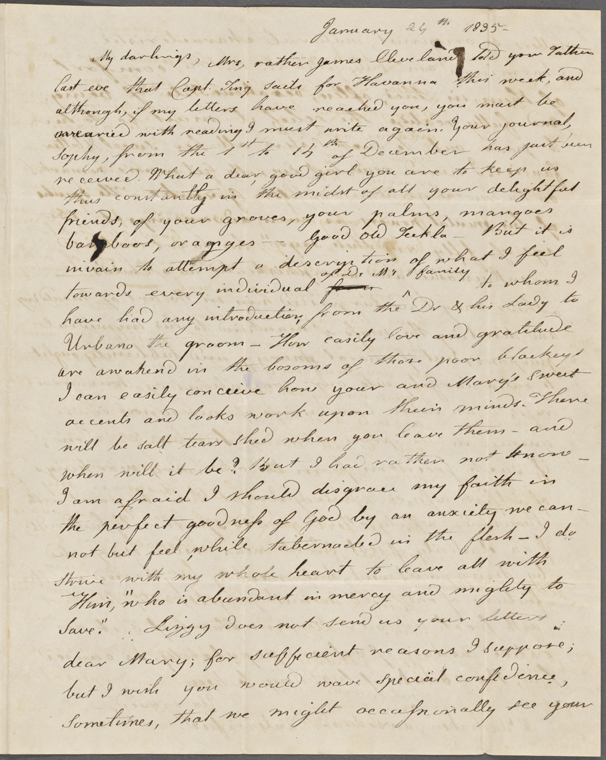 January 24th 1835-
My darlings, Mrs, rather James Cleveland told your Father
last eve that Capt. King sails for Havanna this week and
although, if my letters have reached you, you must be
wearied with reading I must write again. Your journal,
Sophy, from the 1st to 14th of December has just been
received What a dear good girl you are to keep us
thus constantly in the midst of all your delightful
friends, of your groves, your palms, mangoes
bamboos, oranges — Good old Tekla - But it is
invain to attempt a description of what I feel
of Dr. M's family
towards every individual to whom I
have had any introduction, from the Dr & his Lady to
Urbano the groom — How easily love and gratitude
are awakend in the bosoms of those poor blackeys
I can easily conceive how your and Mary's sweet
accents and looks work upon their minds. There
will be salt tears shed when you leave them - and
when will it be? But I had rather not know -
I am afraid I should disgrace my faith in
the perfect goodness of God by an anxiety we can-
not but feel, while tabernacled in the flesh - I do
strive with my whole heart to leave all with
"Him," "who is abundant in mercy and mighty to
save". Lizzy does not send us your letters
dear Mary; for sufficient reasons I suppose;
but I wish you would wave special confidence,
sometimes, that we might occasionally see your